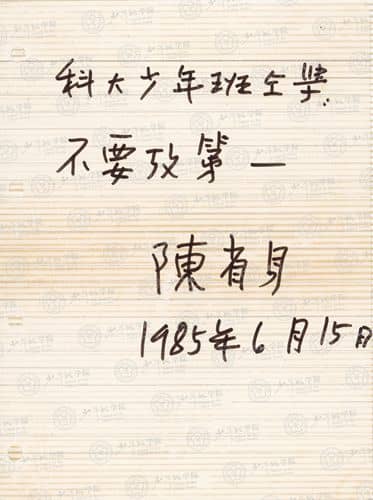 科大少年班仝學:
不要攷第一
陳省身
1985年6月15日